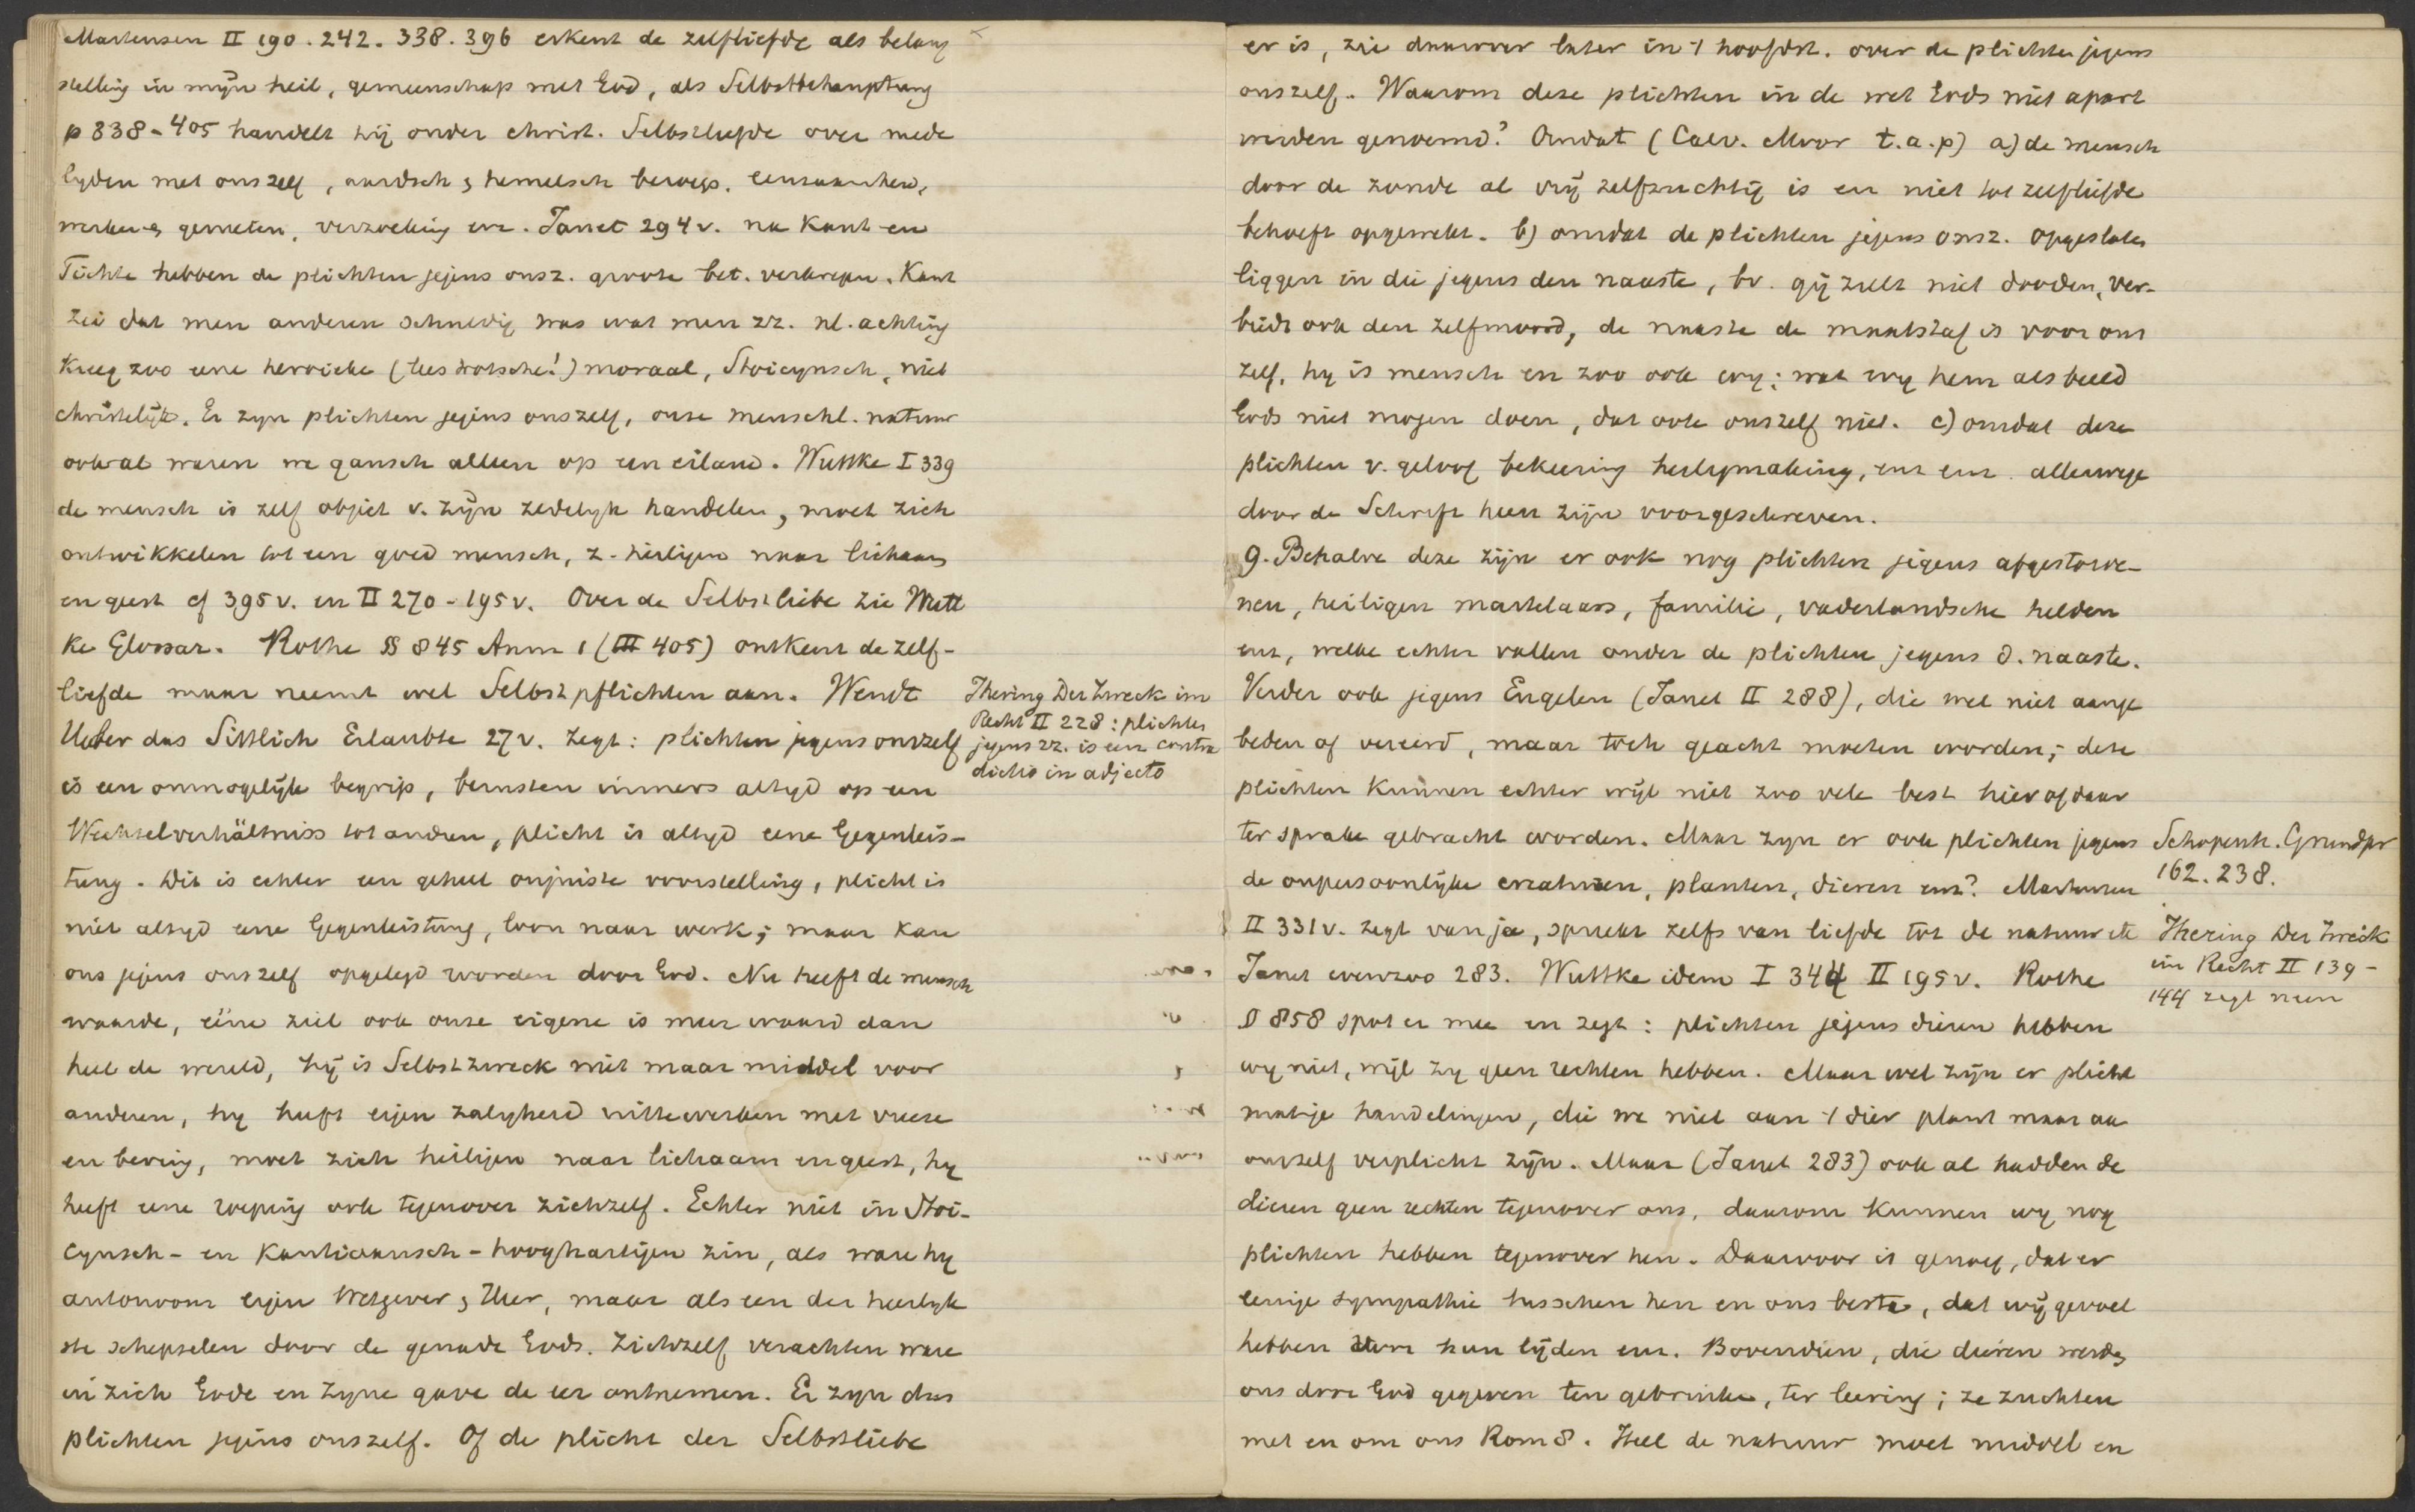 Martensen II 190. 242. 338. 396 erkent de zelfliefde als belang
stelling in mijn heil, gemeenschap met God, als Selbstbehauptung
p 338-405 handelt hij onder christ. Selbstliefde over mede
lyden met onszelf, aardsch & hemelsch beroep. eenzaamheid,
werken & genieten, verzoeking enz. Janet 294v. na Kant en
Fichte hebben de plichten jegens onsz. groote bet. verkregen. Kant
zei dat men anderen schuldig was wat men zz. nl. achting
Kreeg zoo eene heroieke (lees trotsche!) moraal, Stoicynsch, niet
christelijk. Er zyn plichten jegens onszelf, onze menschl. natuur
ook al waren we gansch alleen op een eiland. Wuttke I 339
de mensch is zelf object v. zijn zedelyk handelen, moet zich
ontwikkelen tot een goed mensch, z. heiligen naar lichaam
en geest cf 395v. en II 270-195v. Over de Selbstliebe zie Wutt
ke Glossar. Rothe §§ 845 Anm 1 (III 405) ontkent de zelf-
liefde maar neemt wel Selbstpflichten aan. Wendt
Ueber das Sittlich Erlaubte 27v. zegt: plichten jegens onszelf
is een onmogelijk begrip, berusten immers altyd op een
Wechselverhältniss tot anderen, plicht is altyd eene Gegenleis-
tung. Dit is echter een geheel onjuiste voorstelling, plicht is
niet altyd eene Gegenleistung, loon naar werk; maar kan
ons jegens onszelf opgelegd worden door God. Nu heeft de mensch
waarde, eéne ziel ook onze eigene is meer waard dan
heel de wereld, hij is Selbstzweck niet maar middel voor
anderen, hy heeft eigen zalygheid uittewerken met vreeze
en beving, moet zich heiligen naar lichaam en geest, hy
heeft eene roeping ook tegenover zichzelf. Echter niet in Stoi-
cynsch- en Kantiaansch-hooghartigen zin, als ware hy
autonoom eigen Wetgever & Heer, maar als een der heerlyk
ste schepselen door de genade Gods. Zichzelf verachten ware
in zich Gode en Zyne gave de eer ontnemen. Er zyn dus
plichten jegens onszelf. Of de plicht der Selbstliebe
Ihering Der Zweck im
Recht II 228: plichten
jegens zz. is een contra
dictio in adjecto
er is, zie daarover later in 't hoofdst. over de plichten jegens
onszelf. Waarom deze plichten in de wet Gods niet apart
werden genoemd? Omdat (Calv. Moor t.a.p) a) de mensch
door de zonde al vrij zelfzuchtig is en niet tot zelfliefde
behoeft opgewekt. b) omdat de plichten jegens onsz. opgesloten
liggen in die jegens den naaste, bv. gij zult niet dooden, ver-
biedt ook den zelfmoord, de naaste de maatstaf is voor ons
zelf, hy is mensch en zoo ook wy; wat wy hem als beeld
Gods niet mogen doen, dat ook onszelf niet. c) omdat deze
plichten v. geloof bekeering heilygmaking, enz enz. allerwege
door de Schrift heen zijn voorgeschreven.
9. Behalve deze zijn er ook nog plichten jegens afgestorve-
nen, heiligen martelaars, familie, vaderlandsche helden
enz, welke echter vallen onder de plichten jegens d. naaste.
Verder ook jegens Engelen (Janet II 288), die wel niet aange
beden of vereerd, maar toch geacht moeten worden; deze
plichten kunnen echter wijl niet zoo vele best hier of daar
ter sprake gebracht worden. Maar zyn er ook plichten jegens
de onpersoonlijke creaturen, planten, dieren enz? Martensen
II 331v. zegt van ja, spreekt zelfs van liefde tot de natuur etc
Janet evenzoo 283. Wuttke idem I 344 II 195v. Rothe
§ 858 spot er mee en zegt: plichten jegens dieren hebben
wy niet, wijl zy geen rechten hebben. Maar wel zijn er plicht
matige handelingen, die we niet aan 't dier plant maar aan
onszelf verplicht zijn. Maar (Janet 283) ook al hadden de
dieren geen rechten tegenover ons, daarom kunnen wy nog
plichten hebben tegenover hen. Daarvoor is genoeg, dat er
eenige sympathie tusschen hen en ons besta, dat wij gevoel
hebben voor hun lijden enz. Bovendien, die dieren werden
ons door God gegeven ten gebruike, ter leering; ze zuchten
met en om ons Rom 8. Heel de natuur moet middel en
Schopenh. Grundpr
162. 238.
Ihering Der Zweck
im Recht II 139-
144 zegt neen